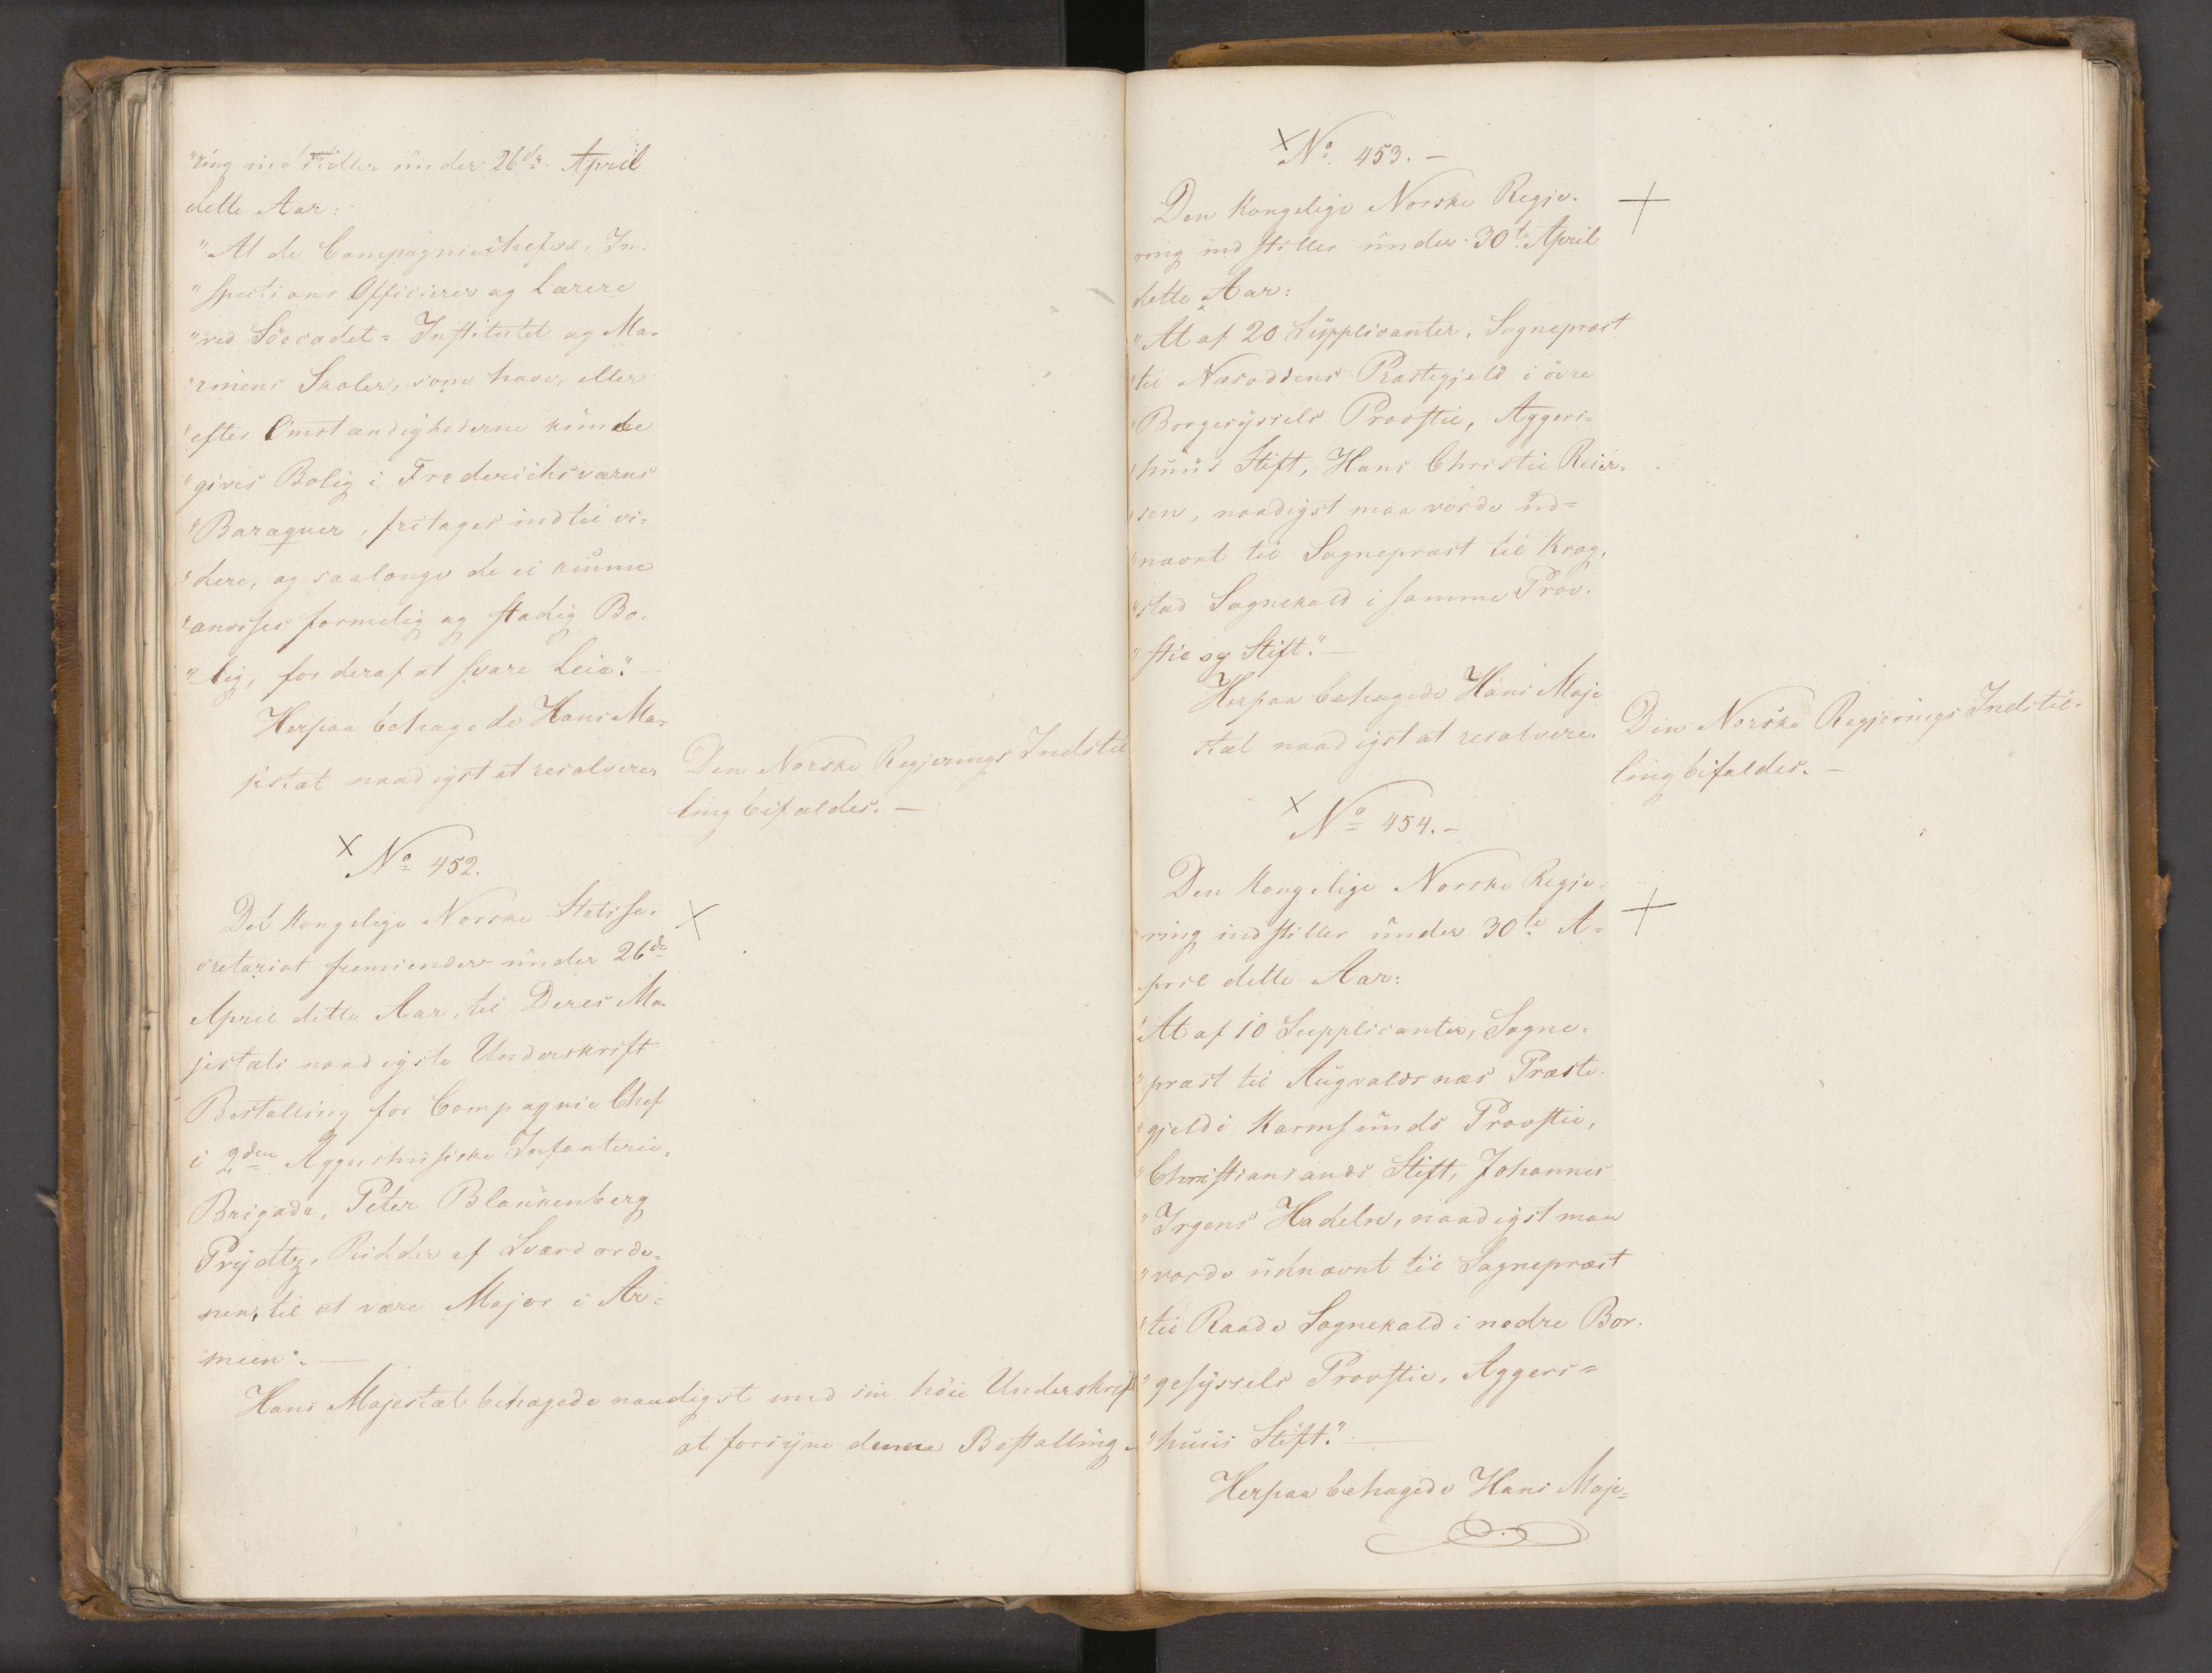 "ring indstiller under 26de April
dette Aar:
"At de Compagniechefer, In-
"spections Officierer og Lærere
"ved Söecadet= Institutet og Ma-
"rinens Skoler, som have, eller
"efter Omstændighederne kunde
"gives Bolig i Frederichsværns
"Baraquer, fritages indtil vi-
"dere, og saalænge de ei kunne
"anvises formelig og stadig Bo-
"lig, for deraf at svare Leie". —
Herpaa behagede Hans Ma-
jestæt naadigst at resolvere:
Den Norske Regjerings Indstil
ling bifaldes. —
× No 452.
Det Kongelige Norske Statsse-
×
cretariat fremsender under 26de
April dette Aar, til Deres Ma-
jestæts naadigste Underskrift
Bestalling for Compagnie Chef
i 2den Aggershusiske Infanterie-
Brigade, Peter Blankenberg
Prydtz, Ridder af Sværdorde-
nen, til at være Major i Ar=
meen". —
Hans Majestæt behagede naadigst med sin höie Underskrift
at forsyne denne Bestalling. —
× No 453. —
Den Kongelige Norske Regje-
+
"ring indstiller under 30te April
dette Aar:
"At af 20 Supplicanter, Sognepræst
"til Næsoddens Præstegjeld i övre
"Borgesyssels Provstie, Aggers=
"huus Stift, Hans Christie Reier-
"sen, naadigst maa vorde ud=
"nævnt til Sognepræst til Krog-
"stad Sognekald i samme Prov-
"stie og Stift." —
Herpaa behagede Hans Maje
stæt naadigst at resolvere:
Den Norske Regjerings Indstil-
ling bifaldes. —
× No 454. —
Den Kongelige Norske Regje-
+
ring indstiller under 30te A=
pril dette Aar:
"At af 10 Supplicanter, Sogne-
"præst til Augvaldsnæs Præste-
"gjeld i Karmsunds Provstie,
"Christiansands Stift, Johannes
"Irgens Hadeln, naadigst maa
"vorde udnævnt til Sognepræst
"til Raade Sognekald i nedre Bor-
"gesyssels Provstie, Aggers=
"huus Stift." —
Herpaa behagede Hans Maje=